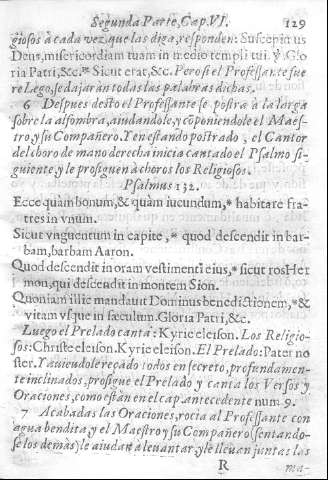 Segunda Parte, Cap. VI. 129
giosos à cada vez, que las diga, responden: Suscepimus
Deus, misericordiam tuam in medio templi tui. ℣. Glo
ria Patri, &c. ℟. Sicut erat, &c. Pero si el Professante fue
re Lego, se dajaràn todas las palabras dichas.
6 Despues desto el Professante se postra à la larga
sobre la alfombra, aiudandole, y cõponiendole el Maes-
tro, y su Compañero. Y en estando postrado, el Cantor
del choro de mano derecha inicia cantado el Psalmo si-
guiente, y le prosiguen à choros los Religiosos.
Psalmus 132.
Ecce quàm bonum, & quàm iucundum, * habitare fra-
tres in vnum.
Sicut vnguentum in capite, * quod descendit in bar-
bam, barbam Aaron.
Quod descendit in oram vestimenti eius, * sicut ros Her
mon, qui descendit in montem Sion.
Quoniam illic mandauit Dominus benedictionem, * &
vitam vsque in sæculum. Gloria Patri, &c.
Luego el Prelado canta: Kyrie eleison. Los Religio-
sos: Christe eleison. Kyrie eleison. El Prelado: Pater no
ster. Y auiendole reçado todos en secreto, profundamen-
te inclinados, prosigue el Prelado y canta los Versos y
Oraciones, como estàn en el cap. antecedente num. 9.
7 Acabadas las Oraciones, rocia al Professante con
agua bendita, y el Maestro y su Compañero (sentando-
se los demàs) le aiudan à leuantar, y le lleuan juntas las
R ma-